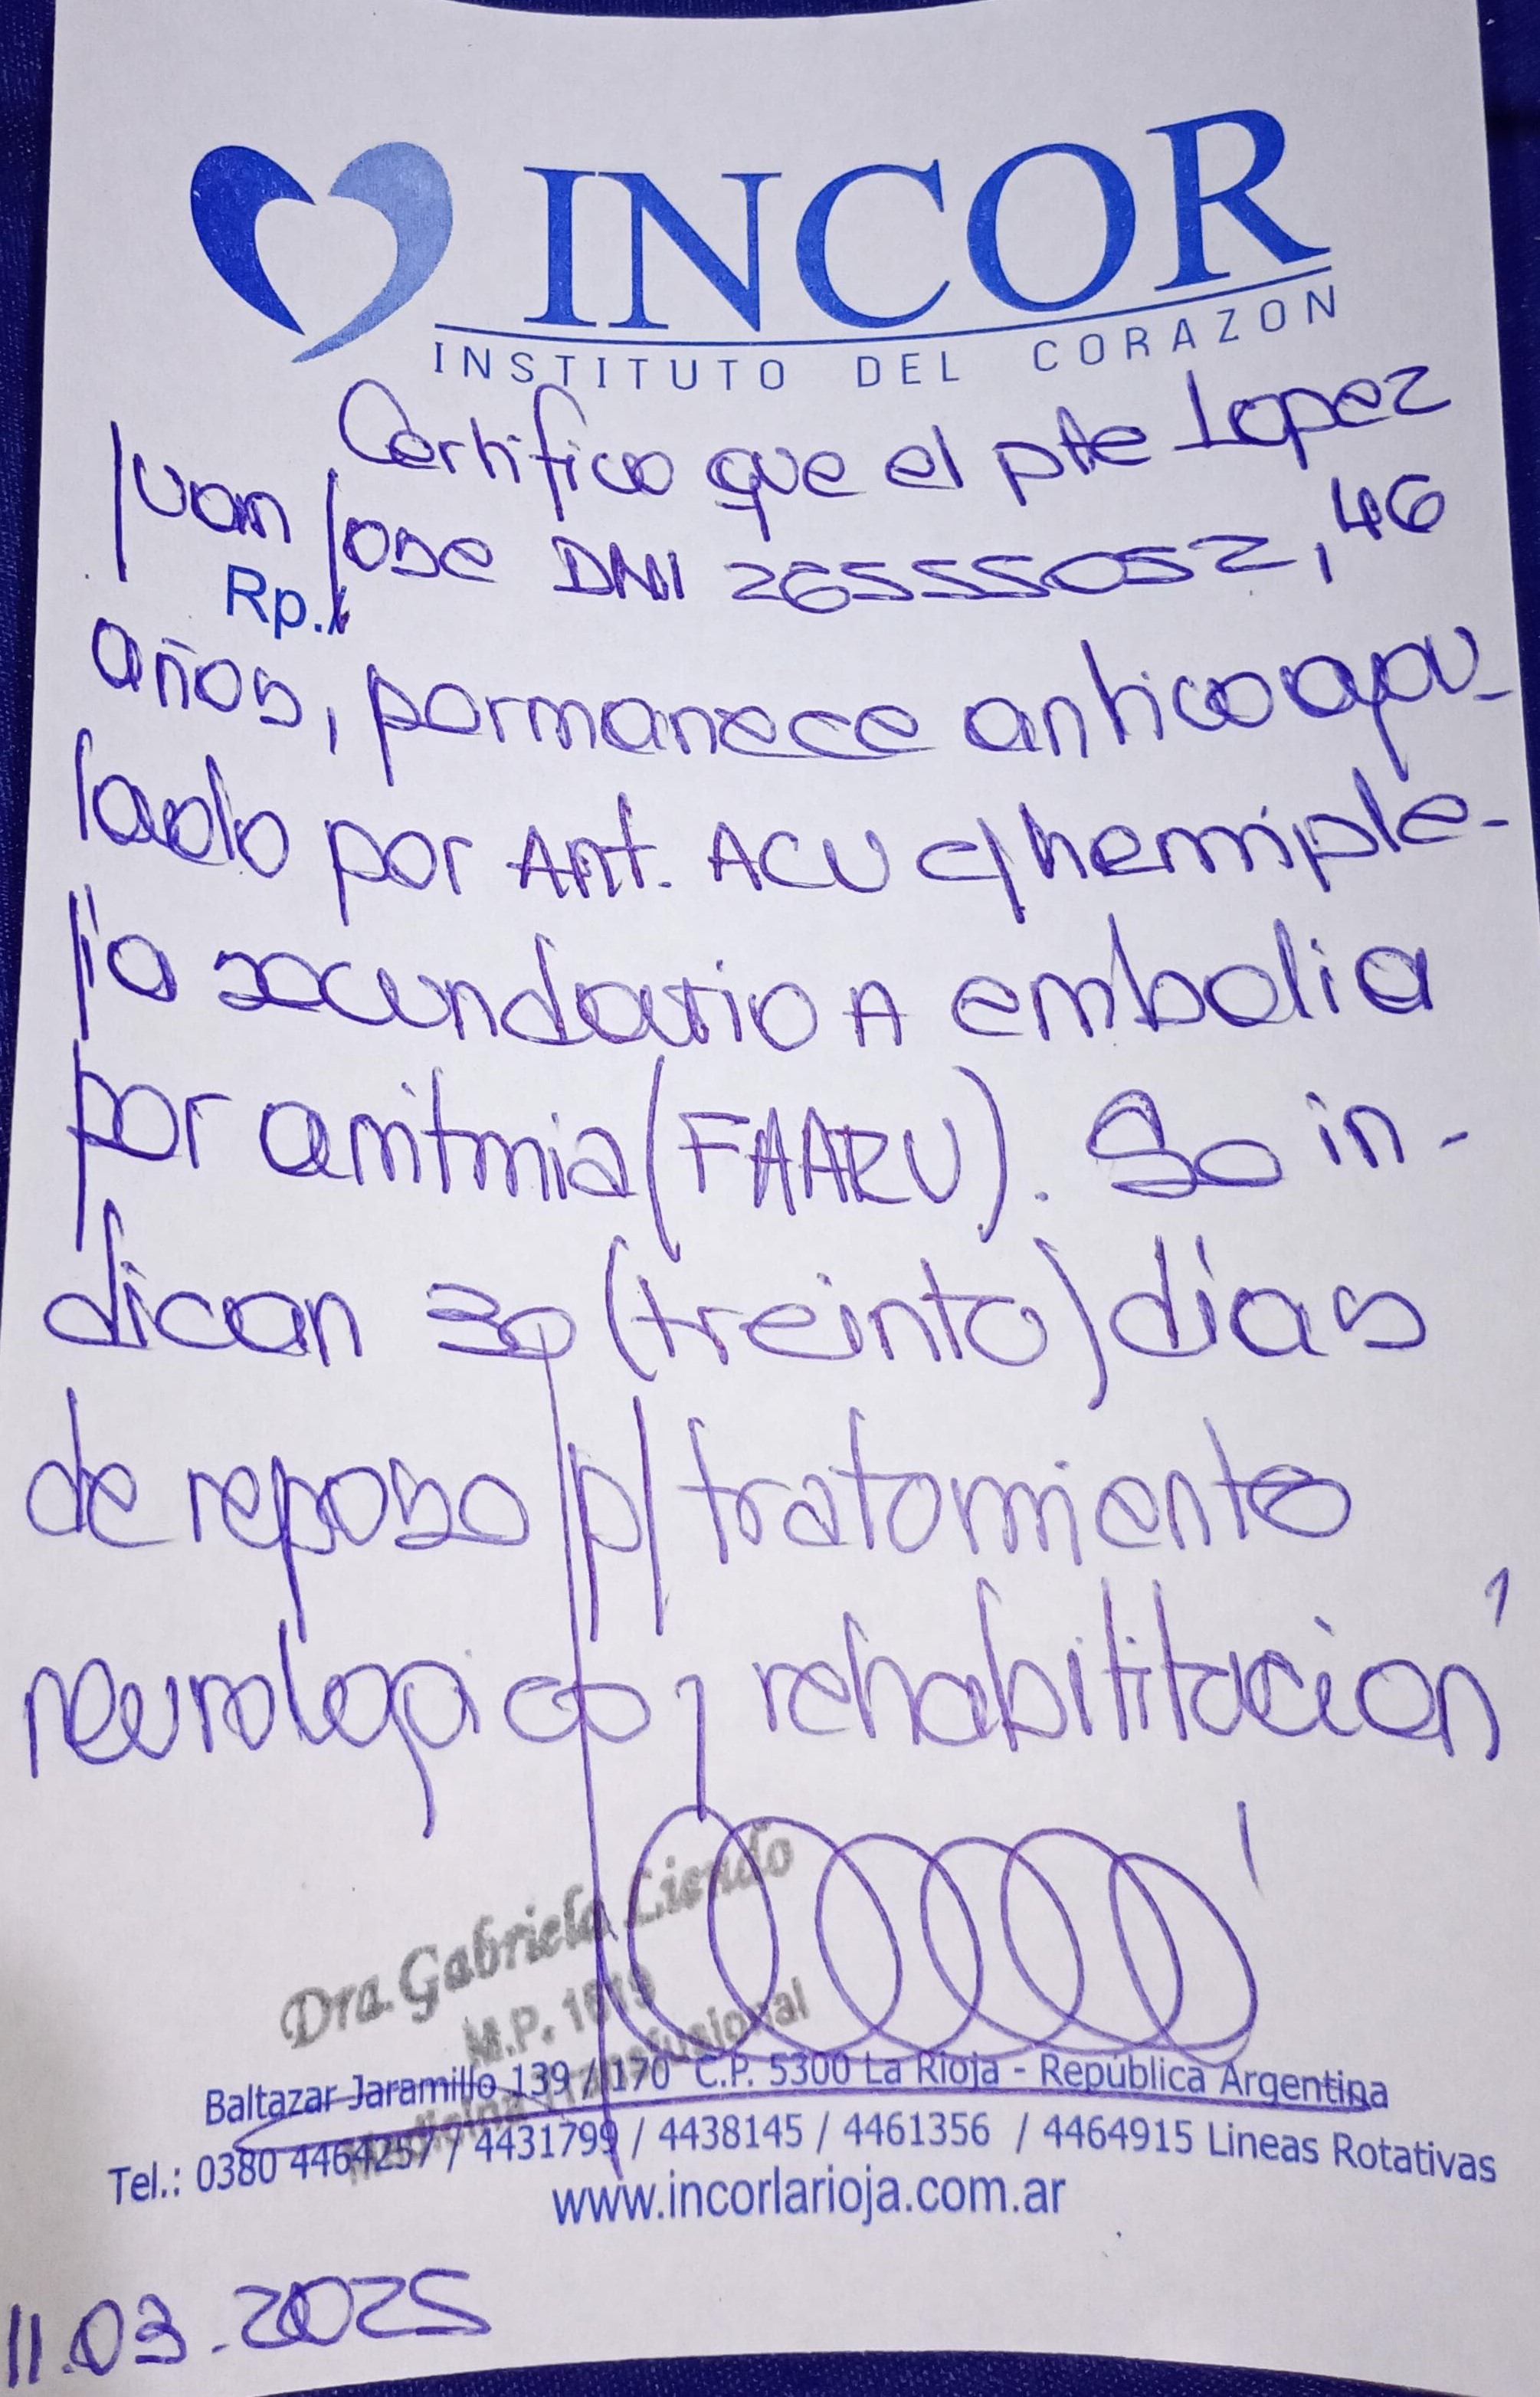 INCOR
INSTITUTO DEL CORAZON
Certifico que el pte Lopez
Juan Jose DNI 26555052, 46
Rp.:
años, permanece anticoagu-
lado por Ant. ACV c/hemiple-
jia secundario A embolia
por arritmia (FAARV). Se in-
dican 30 (treinta) días
de reposo p/ tratamiento
neurologico y rehabilitacion
Dra. Gabriela Liendo
M.P. 1819
Medicina Transfusional
Baltazar Jaramillo 139 / 170 C.P. 5300 La Rioja - República Argentina
Tel.: 0380 4464257 / 4431799 / 4438145 / 4461356 / 4464915 Lineas Rotativas
www.incorlarioja.com.ar
11.03.2025